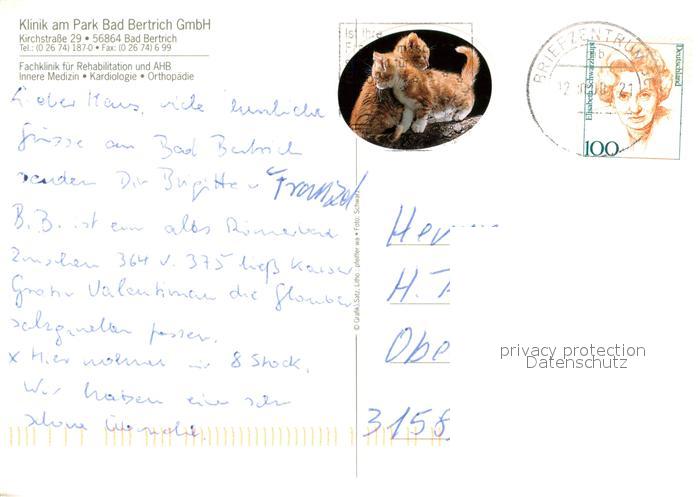 Klinik am Park Bad Bertrich GmbH
Kirchstraße 29 • 56864 Bad Bertrich
Tel.: (0 26 74) 187-0 • Fax: (0 26 74) 6 99
Fachklinik für Rehabilitation und AHB
Innere Medizin • Kardiologie • Orthopädie
Lieber Hans, viele herzliche
Grüsse aus Bad Bertrich
senden Dir Brigitte u Franzel
B.B. ist ein altes Römerbad
Zwischen 364 u. 375 ließ Kaiser
Gratian Valentinian die Glauber
salzquellen fassen.
x Hier wohnen wir 8 Stock.
Wir haben eine sehr
schöne
© Grafik, Satz, Litho: pfeiffer wa • Foto: Schwarz
Ist Ihre
BRIEFZENTRUM
21
Elisabeth Schwarzhaupt
Deutschland
100
H. T
Obe
3158
privacy protection
Datenschutz